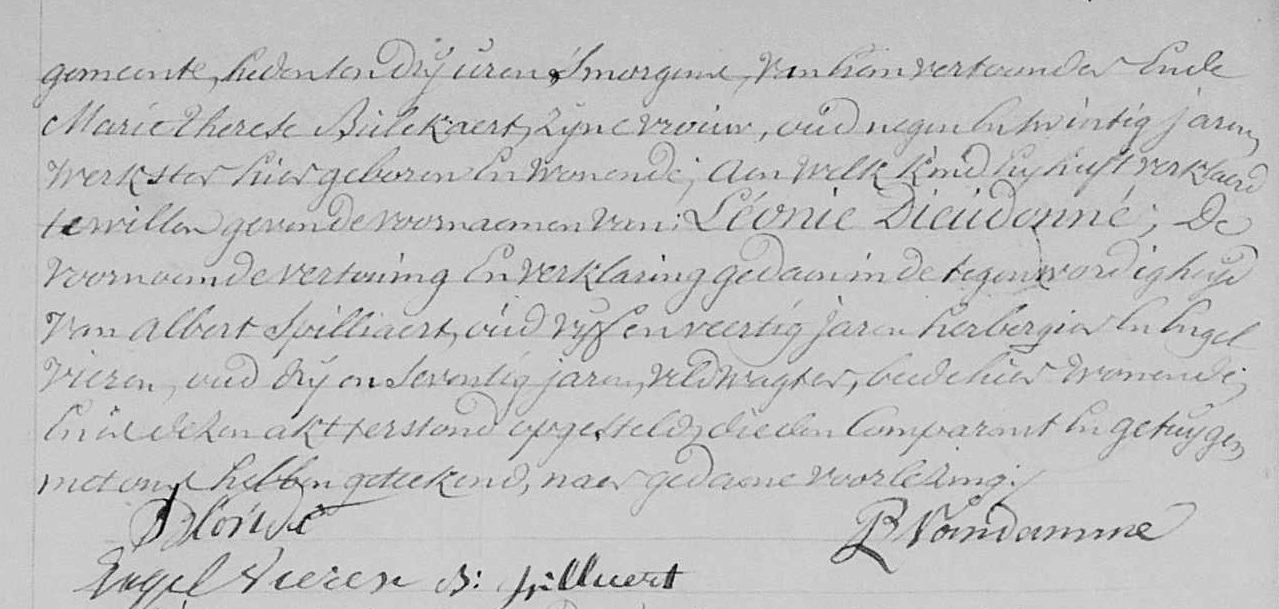 gemeente, heden ten dry uren s'morgens, van hem vertoonder Ende
Marie Therese Bulckaert, zyne vrouw, oud negen En twintig jaren,
werkster hier geboren En wonende; Aen welk kind hy heeft verklaerd
te willen geven de voornaemen van: Léonie Dieudonné; De
voornoemde vertouing En verklaring gedaen in de tegenwoordigheyd
Van Albert Spilliaert, oud vyf en veertig jaren herbergier En Engel
Vieren, oud dry en seventig jaren, veldwagter, beede hier wonende;
En is dezen akt terstond opgesteld, die den Comparant En getuygen
met ons hebben geteekend, naer gedaene voorlezing.
B Vandamme
Engel Vieren B: spilliaert